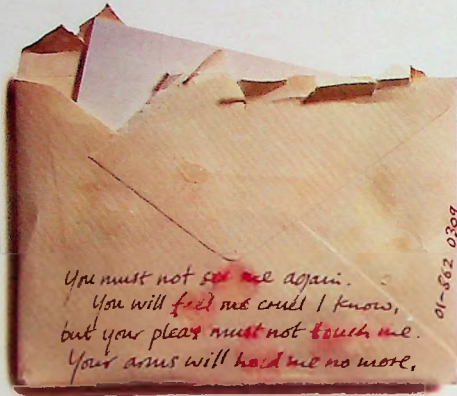 You must not see me again.
You will feel me cruel I know,
but your pleas must not touch me.
Your arms will hold me no more.
01-862 0309